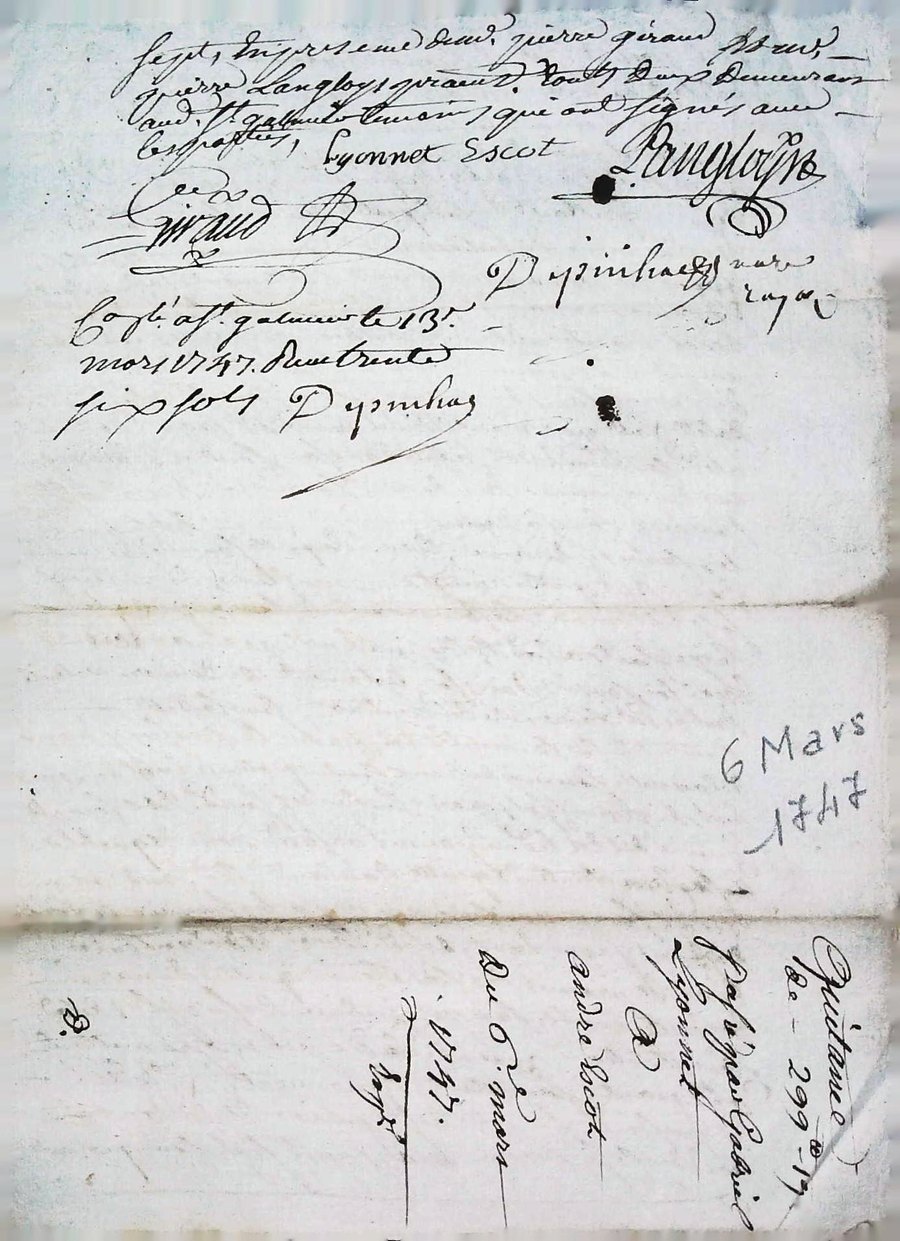 sept, En presence de me. pierre giraud Et me.
pierre Langloys praticn. Touts deux demeurans
aud. St. galmier temoins qui ont signés avec
les parties, Lyonnet Escot PLangloys
Giraud
Depinhac
Conlé. a St. galmier le 13e.
mars 1747. Recu trente
six sols Depinhac
6 Mars
1747
Quittance
de - 299 - 19
Passé par Gabriel
Lyonnet
A
andre Escot
Du 6.e mars
1747.